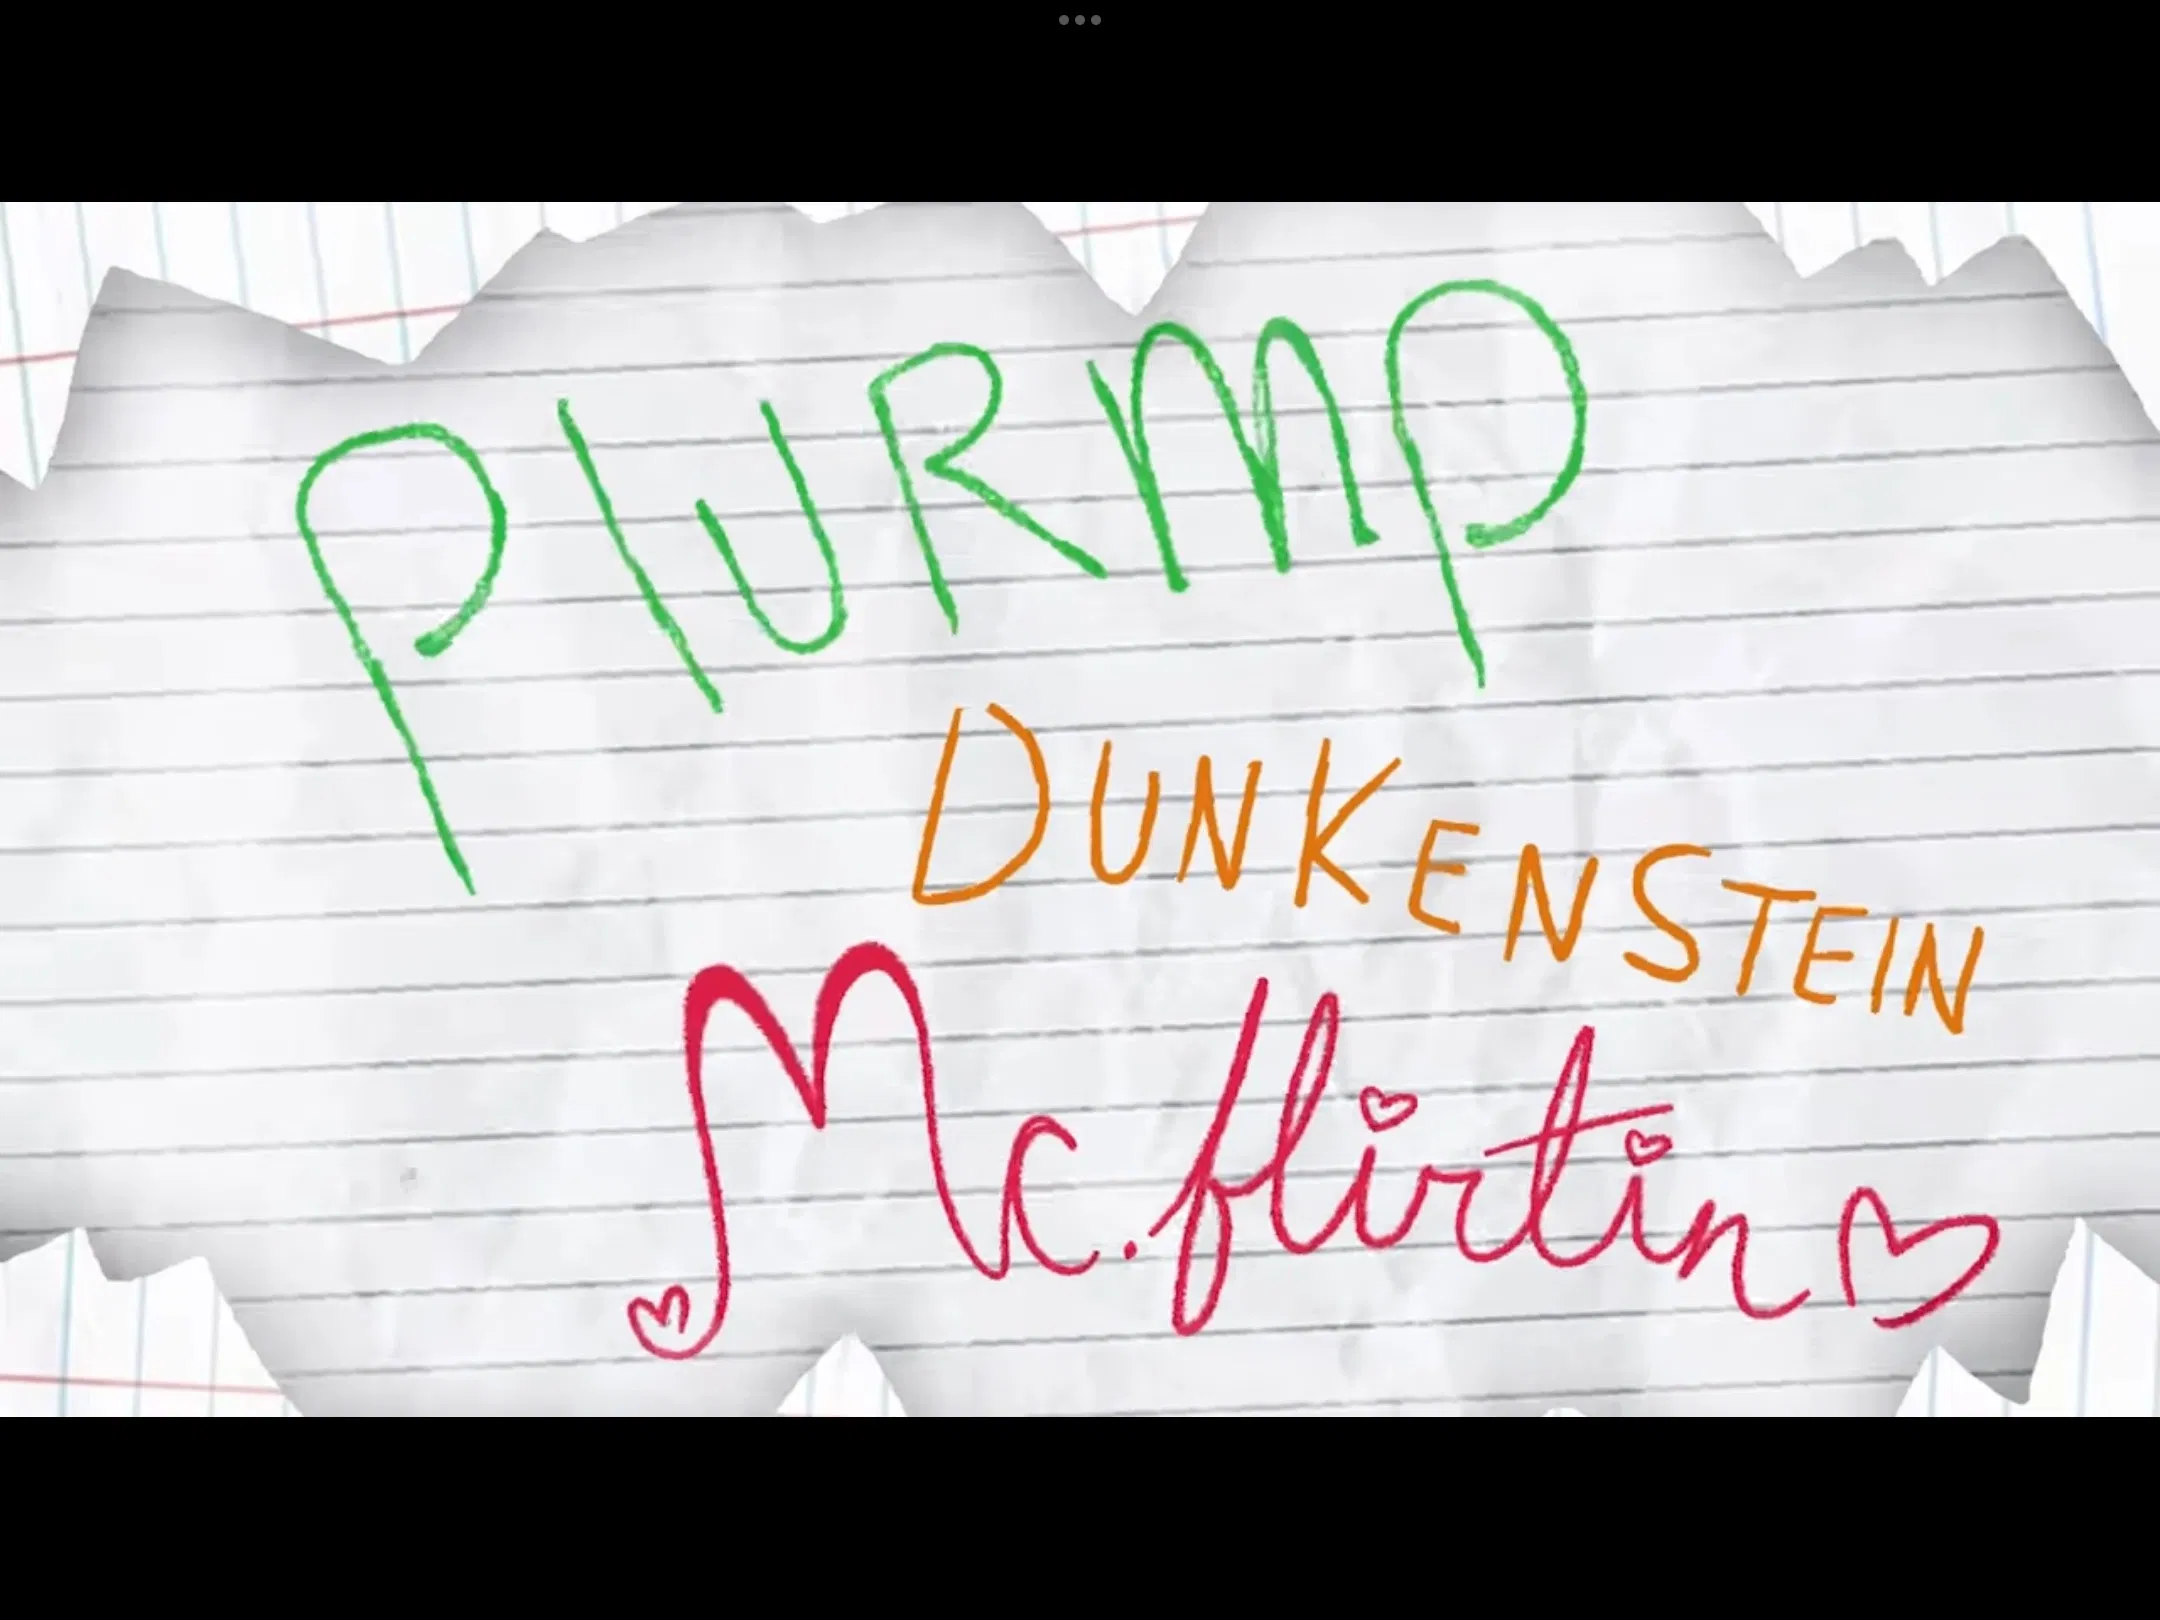 PlURMP
DUNKENSTEIN
Mc.flirtin